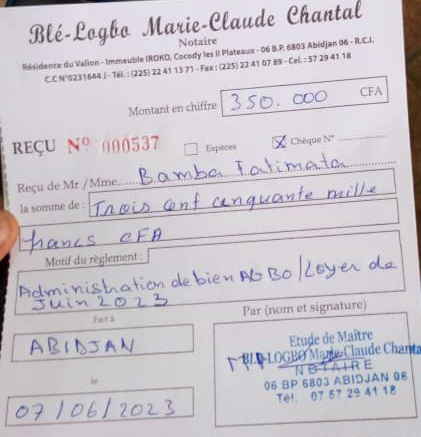 Blé-Logbo Marie-Claude Chantal
Notaire
Résidence du Vallon - Immeuble IROKO, Cocody les II Plateaux - 06 B.P. 6803 Abidjan 06 - R.C.I.
C.C N°0231644 J - Tél. : (225) 22 41 13 71 - Fax : (225) 22 41 07 89 - Cel. : 57 29 41 18
Montant en chiffre 350.000 CFA
REÇU Nº 000537 Espèces X Chèque N°
Reçu de Mr /Mme Bamba Fatimata
la somme de : Trois cent cinquante mille
francs CFA
Motif du règlement :
Administration de bien AGBO/Loyer de
Juin 2023
Fait à
ABIDJAN
le
07/06/2023
Par (nom et signature)
Etude de Maître
BLE-LOGBO Marie-Claude Chanta
NOTAIRE
06 BP 6803 ABIDJAN 06
Tél. 07 57 29 41 18